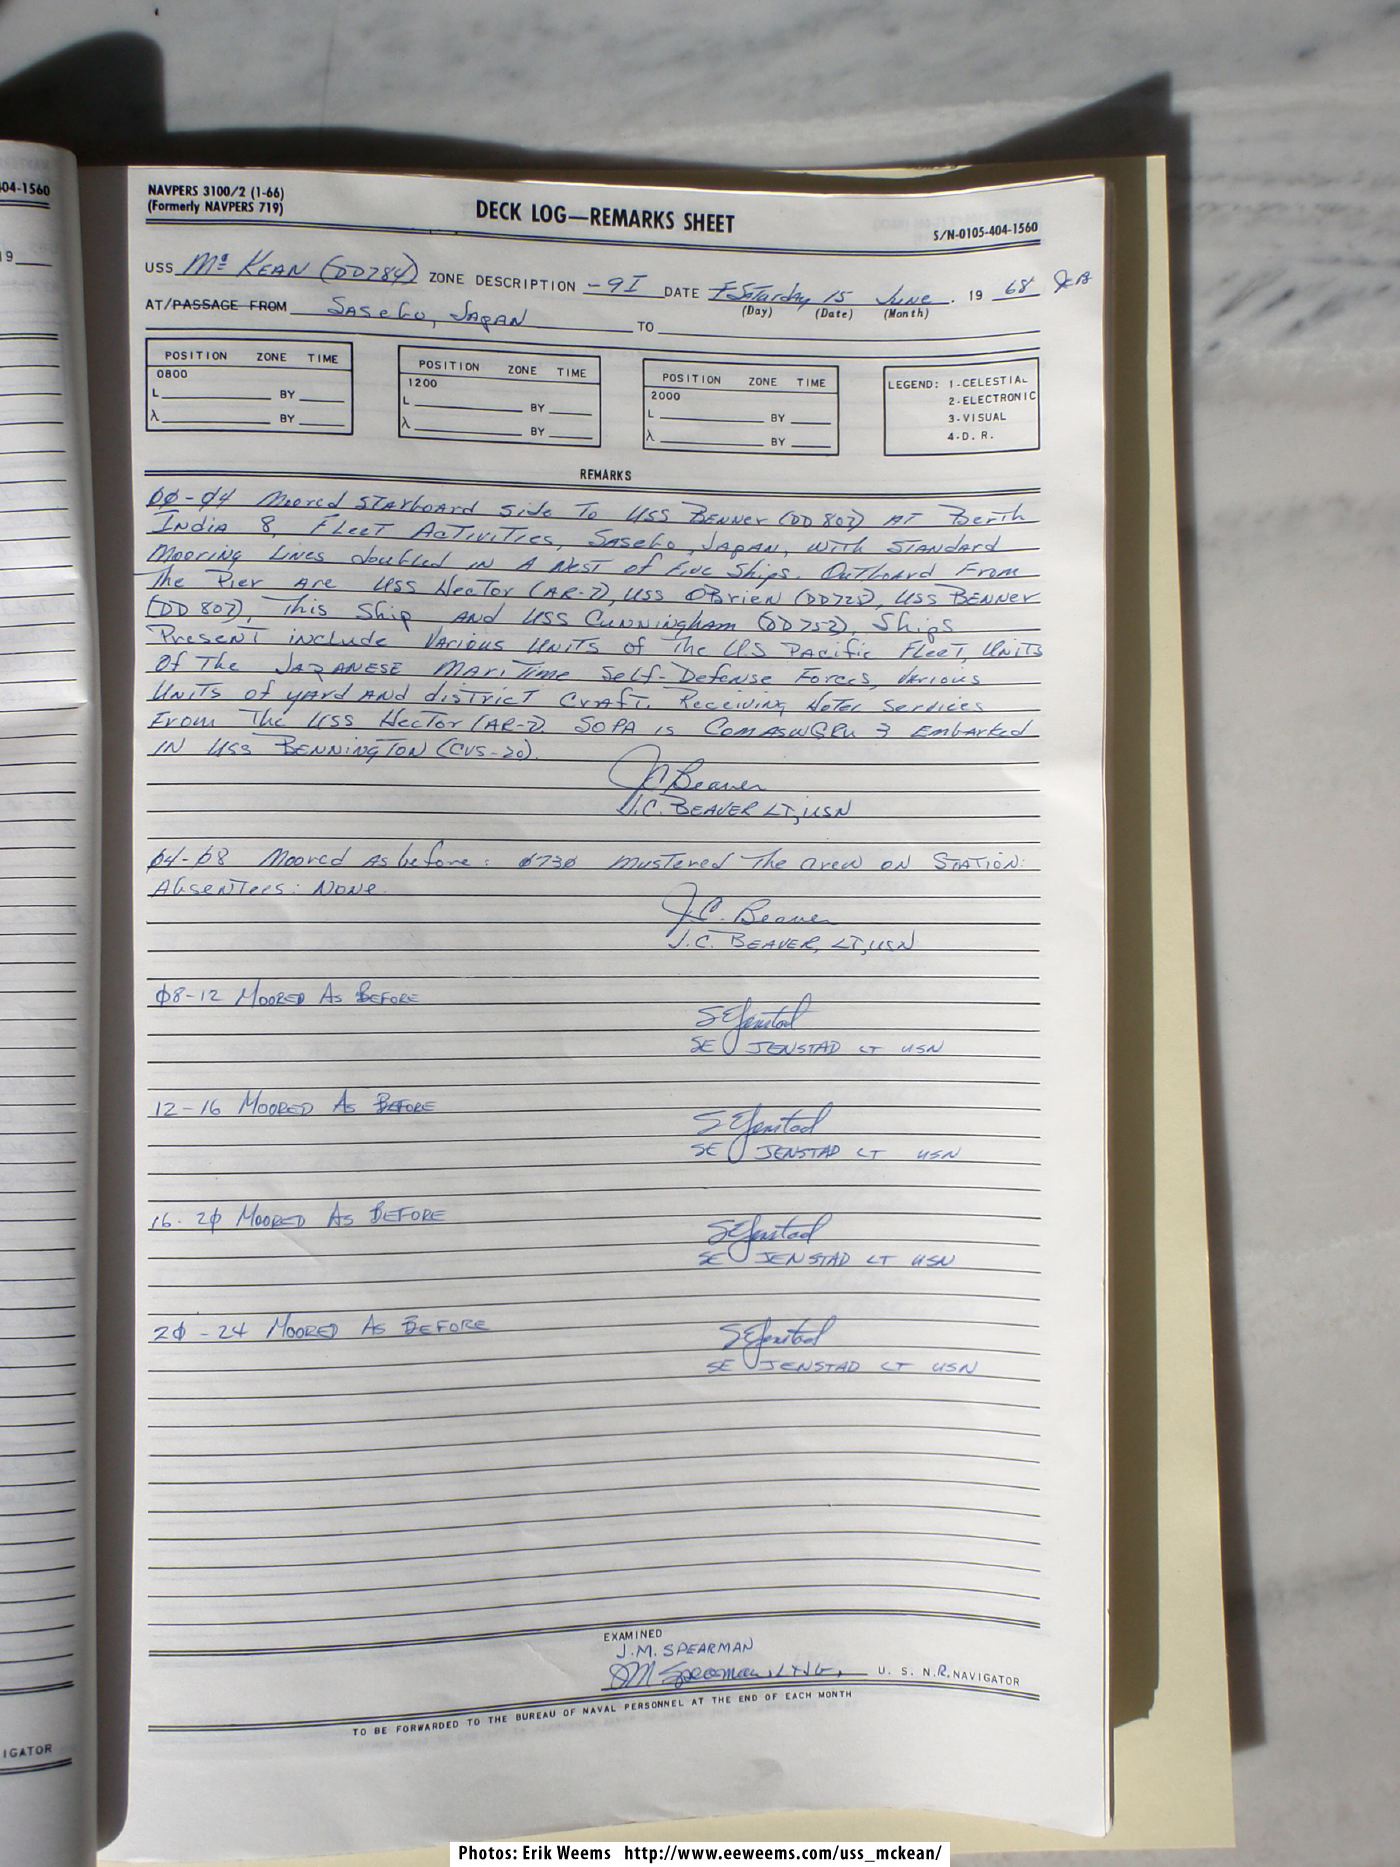 04-1560
19
IGATOR
NAVPERS 3100/2 (1-66)
(Formerly NAVPERS 719)
DECK LOG—REMARKS SHEET
S/N-0105-404-1560
USS Mc KEAN (DD784) ZONE DESCRIPTION -9I DATE Saturday 15 June . 19 68 JCB
(Day) (Date) (Month)
AT/PASSAGE FROM Sasebo, Japan TO
POSITION ZONE TIME
0800
L BY
λ BY
POSITION ZONE TIME
1200
L BY
λ BY
POSITION ZONE TIME
2000
L BY
λ BY
LEGEND: 1-CELESTIAL
2-ELECTRONIC
3-VISUAL
4-D. R.
REMARKS
00-04 Moored Starboard side to USS Benner (DD 807) at Berth
India 8, Fleet Activities, Sasebo, Japan, with Standard
Mooring Lines doubled in a nest of Five Ships. Outboard From
The Pier are USS Hector (AR-7), USS O'Brien (DD725), USS Benner
(DD 807), This Ship and USS Cunningham (DD 752), Ships
Present include Various Units of The US Pacific Fleet, Units
Of The Japanese Maritime Self-Defense Forces, Various
Units of yard and district Craft. Receiving Hotel Services
From The USS Hector (AR-7). SOPA is ComASWGRU 3 Embarked
in USS Bennington (CVS-20).
JC Beaver
J.C. BEAVER LT, USN
04-08 Moored As before: 0730 Mustered The crew on Station:
Absentees: None
J.C. Beaver
J.C. BEAVER, LT, USN
08-12 MOORED AS BEFORE
SE Jenstad
SE JENSTAD LT USN
12-16 MOORED AS BEFORE
SE Jenstad
SE JENSTAD LT USN
16-20 MOORED AS BEFORE
SE Jenstad
SE JENSTAD LT USN
20-24 MOORED AS BEFORE
SE Jenstad
SE JENSTAD LT USN
EXAMINED
J.M. SPEARMAN
JM Spearman, LTJG, U. S. N.R. NAVIGATOR
TO BE FORWARDED TO THE BUREAU OF NAVAL PERSONNEL AT THE END OF EACH MONTH
Photos: Erik Weems http://www.eeweems.com/uss_mckean/